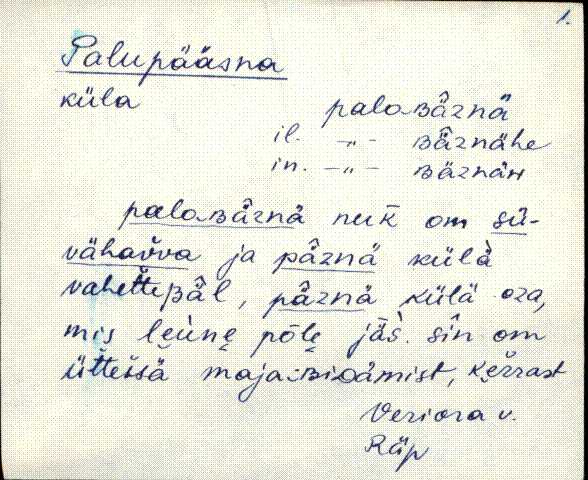 1.
Palupääsna
küla
paloᴃä̂znä
il. -„- ᴃä̂znähe
in. -„- ᴃäznäн
paloᴃä̂znä nuk̄ om sü-
vähav̆va ja pä̂znä külä̀
vahet̆teᴃä̂l, pä̂znä külä oza,
mis leùne põle jäs̄. sîn om
üt̆tessä majaᴃiᴅämist, ker̆rast
Veriora v.
Räp